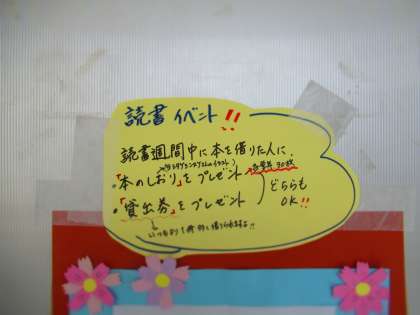 読書イベント!!
読書週間中に本を借りた人に、
各学年30枚
「本のしおり」をプレゼント
「貸出券」をプレゼント
どちらも
OK!!